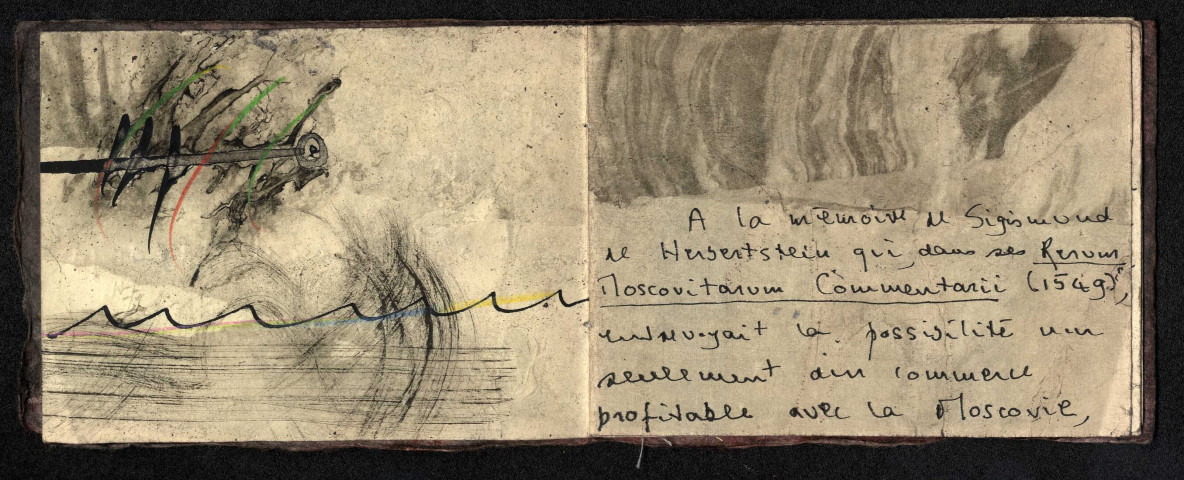 A la mémoire de Sigismund
de Herbertstein qui, dans ses Rerum
Moscovitarum Commentarii (1549),
entrevoyait la possibilité non
seulement d'un commerce
profitable avec la Moscovie,